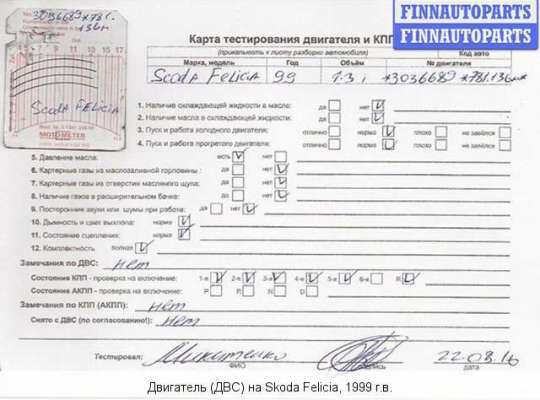 FINNAUTOPARTS
FINNAUTOPARTS
*3036689*781.
136м
MOTOMETER
Scoda Felicia
Карта тестирования двигателя и КПП
(прикалывать к листу разборки автомобиля)
Код авто
Марка, модель Год Объём № двигателя
Scoda Felicia 99 1.3 i *3036689*781.136м*
1. Наличие охлаждающей жидкости в масле: да нет V
2. Наличие масла в охлаждающей жидкости: да нет V
3. Пуск и работа холодного двигателя: отлично норма V плохо не завёлся
4. Пуск и работа прогретого двигателя: отлично норма V плохо не завёлся
5. Давление масла: есть V нет
6. Картерные газы из маслозаливной горловины: да нет V
7. Картерные газы из отверстия масляного щупа: да нет V
8. Наличие газов в расширительном бачке: да нет V
9. Посторонние звуки или шумы при работе: да нет V
10. Дымность и цвет выхлопа: норма V
11. Состояние сцепления: норма V
12. Комплектность полная V
Замечания по ДВС: нет
Состояние КПП - проверка на включение: 1-я V 2-я V 3-я V 4-я V 5-я V 6-я R V
Состояние АКПП - проверка на включение: P R N D
Замечания по КПП (АКПП): нет
Снято с ДВС (по согласованию!): нет
Тестировал: Микитенко 22.08.16
ФИО подпись дата
Двигатель (ДВС) на Skoda Felicia, 1999 г.в.